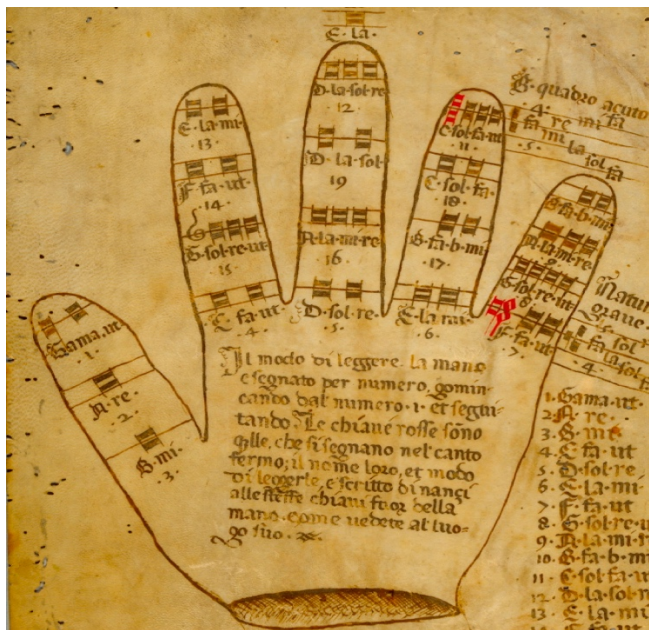 E·la·
D·la·sol·re
12
E·la·mi·
13
F·fa·ut·
14
G·sol·re·ut
15
C·fa·ut·
·4·
D·la·sol·
19
A·la·mi·re
16
D·sol·re·
·5·
C·sol·fa·ut
11
C·sol·fa·
18
B·fa·b·mi
17
E·la·mi·
·6·
B·fa·b·mi
A·la·mi·re
G·sol·re·ut
8
F·fa·ut·
·7·
Gama·ut
·1·
A·re·
·2·
B·mi·
·3·
B·quadro acuto
·4· re mi fa
fa mi la sol fa
·5·
Natur
grave
fa sol
la sol fa
·4·
Il modo di leggere la mano
e segnato per numero, comin
cando dal numero·1· et segui
tando Le chiave rosse sono
qlle, che si segnano nel canto
fermo; il nome loro, et modo
di leggerle, e scritto di nanci
alle stesse chiavi fuor della
mano·come vedete al luo-
go suo·
1·Gama·ut·
2·A·re·
3·B·mi
4·C·fa·ut
5·D·sol·re
6·E·la·mi
7·F·fa·ut
8·G·sol·re·u
9·A·la·mi·r
10·B·fa·b·m
11·C·sol·fa·u
12·D·la·sol·r
13·E·la·mi
14·F·fa·ut